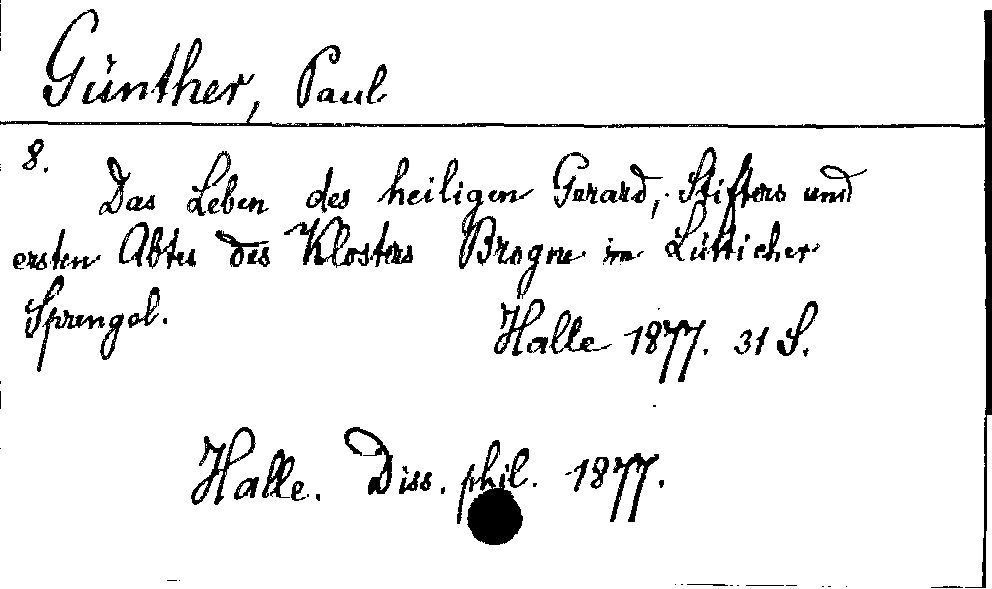 Günther, Paul
8.
Das Leben des heiligen Gerard, Stifters und
ersten Abtes des Klosters Brogne im Lütticher
Sprengel.
Halle 1877. 31 S.
Halle. Diss. phil. 1877.